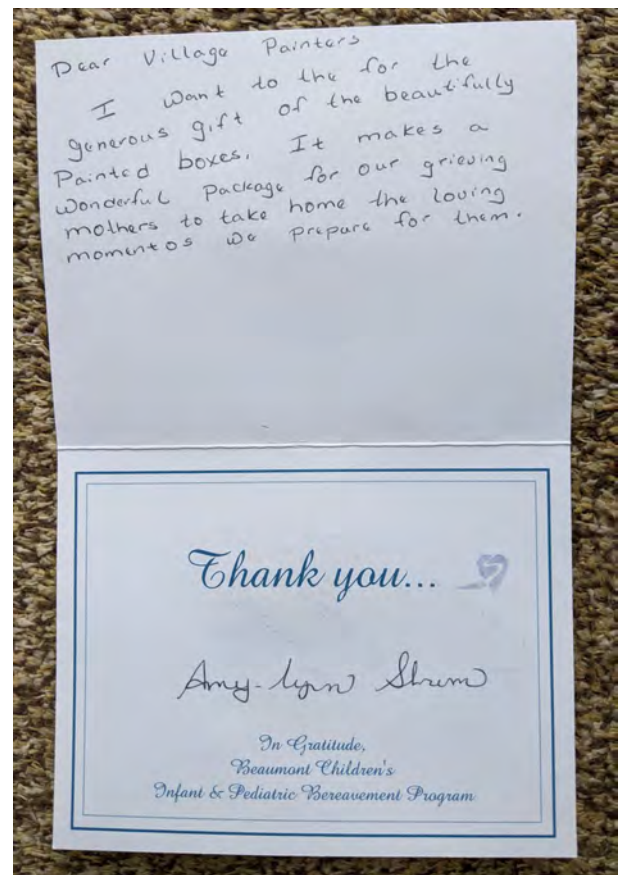 Dear Village Painters
I want to the for the
generous gift of the beautifully
Painted boxes. It makes a
wonderful package for our grieving
mothers to take home the loving
momentos we prepare for them.
Thank you...
Amy-Lynn Shrum
In Gratitude,
Beaumont Children's
Infant & Pediatric Bereavement Program